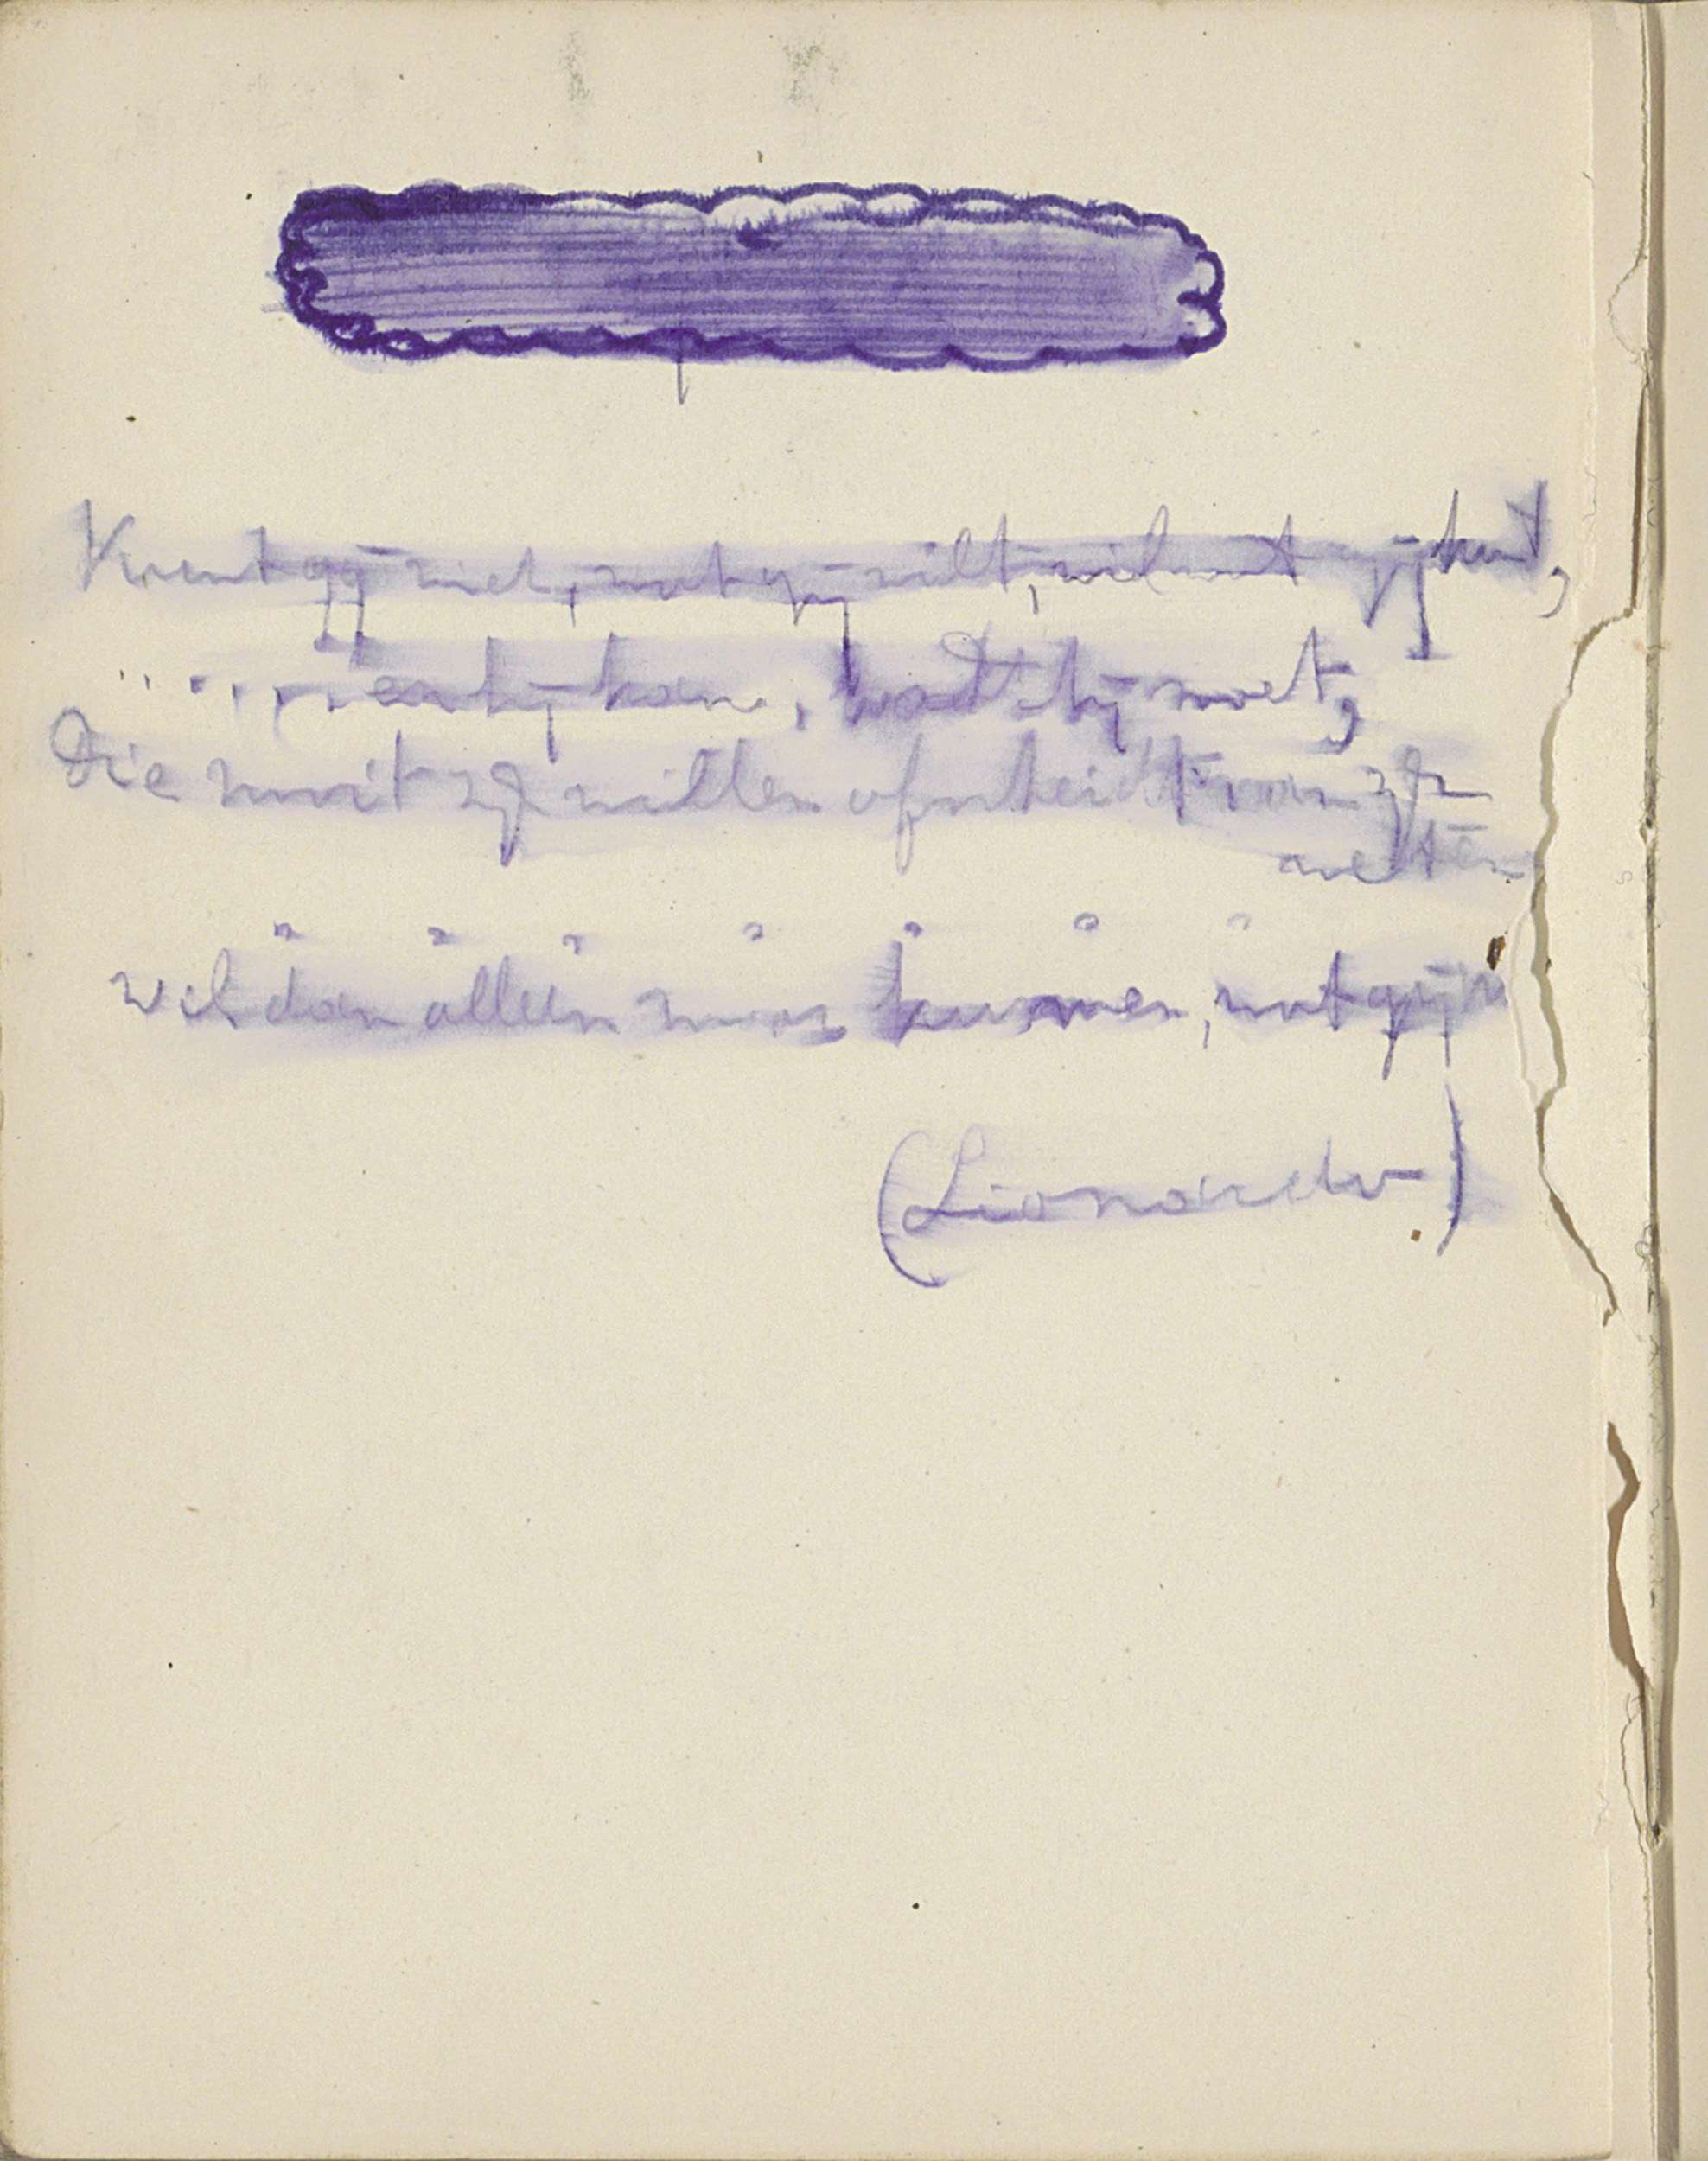 Kunt gij niet, wat gij wilt, wil wat gij kunt,
.... hij kan, wat hij moet,
Die nooit zijn willen afscheidt van zijn
weten
wil dan alleen maar kunnen, wat gij
(Lionardo)